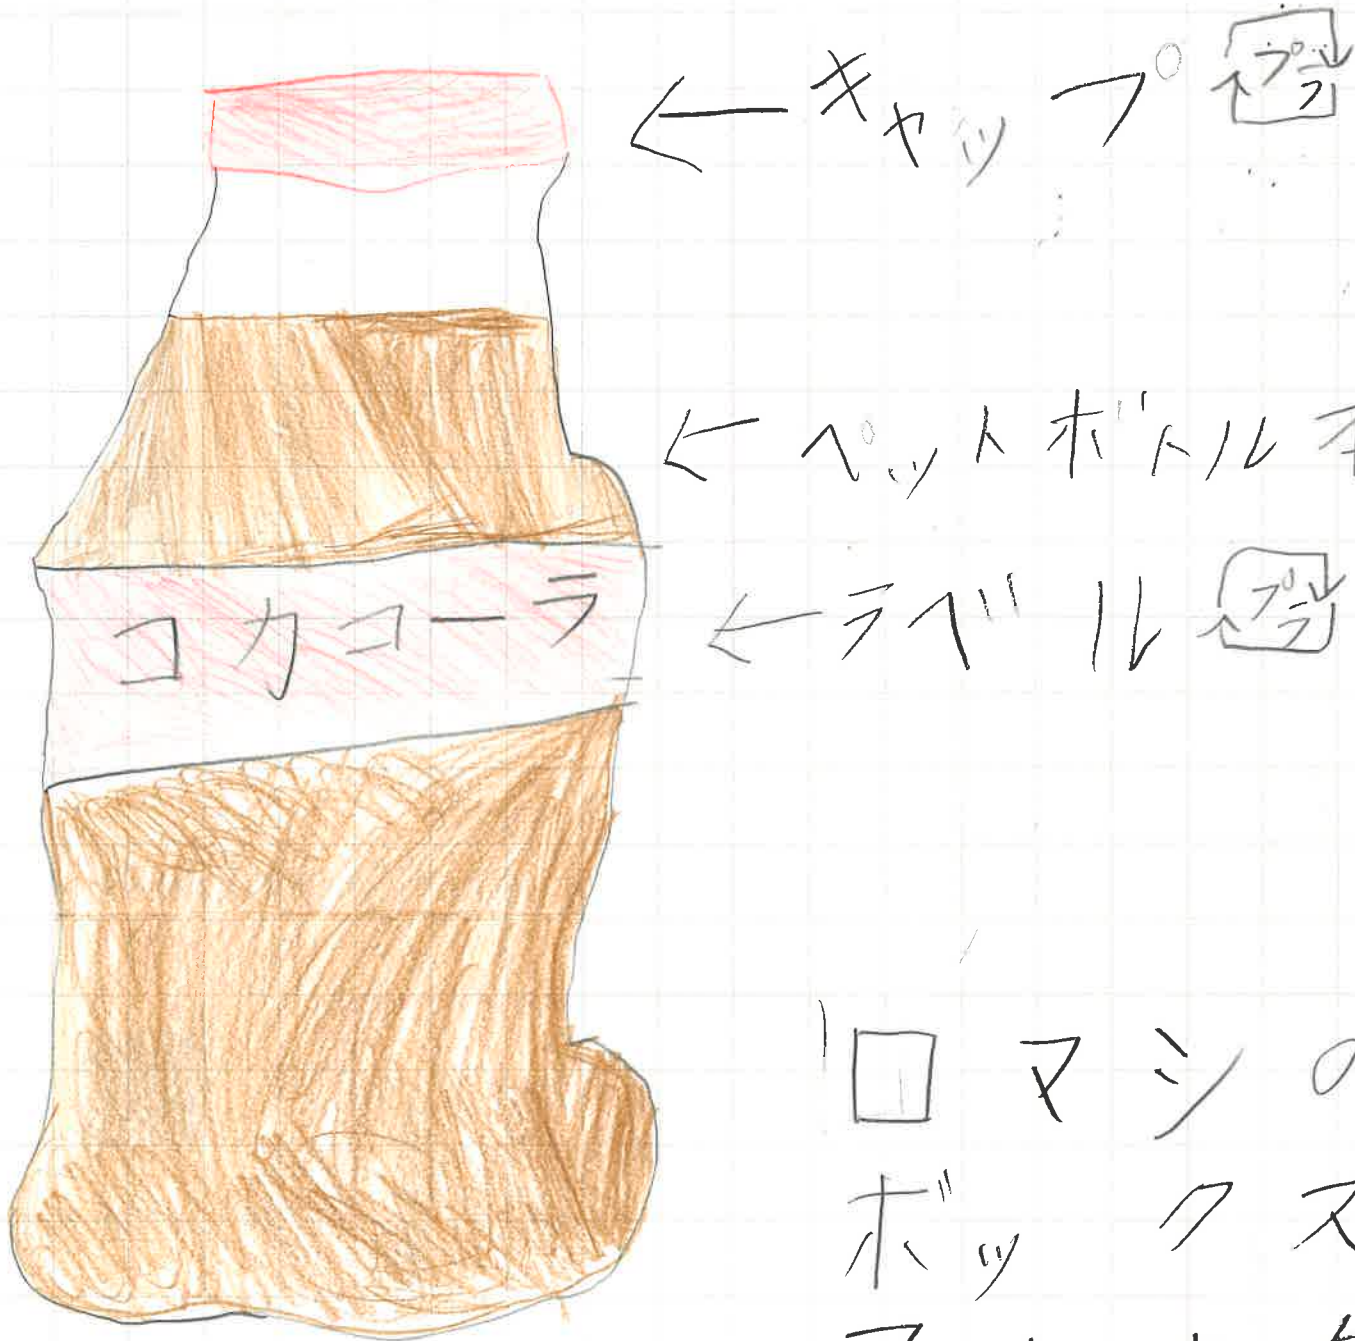 ←キャップ プラ
←ペットボトル
コカコーラ
←ラベル プラ
ロマシの
ボックス